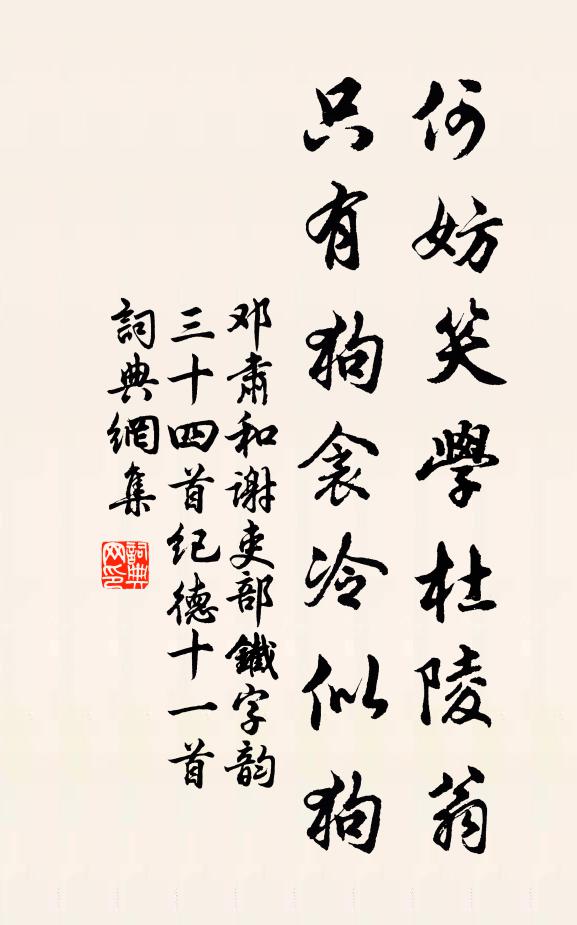 何妨笑學杜陵翁
只有狗衾冷似狗
邓肅和谢吏部鐵字韵
三十四首紀德十一首
詞典網集
詞典网印